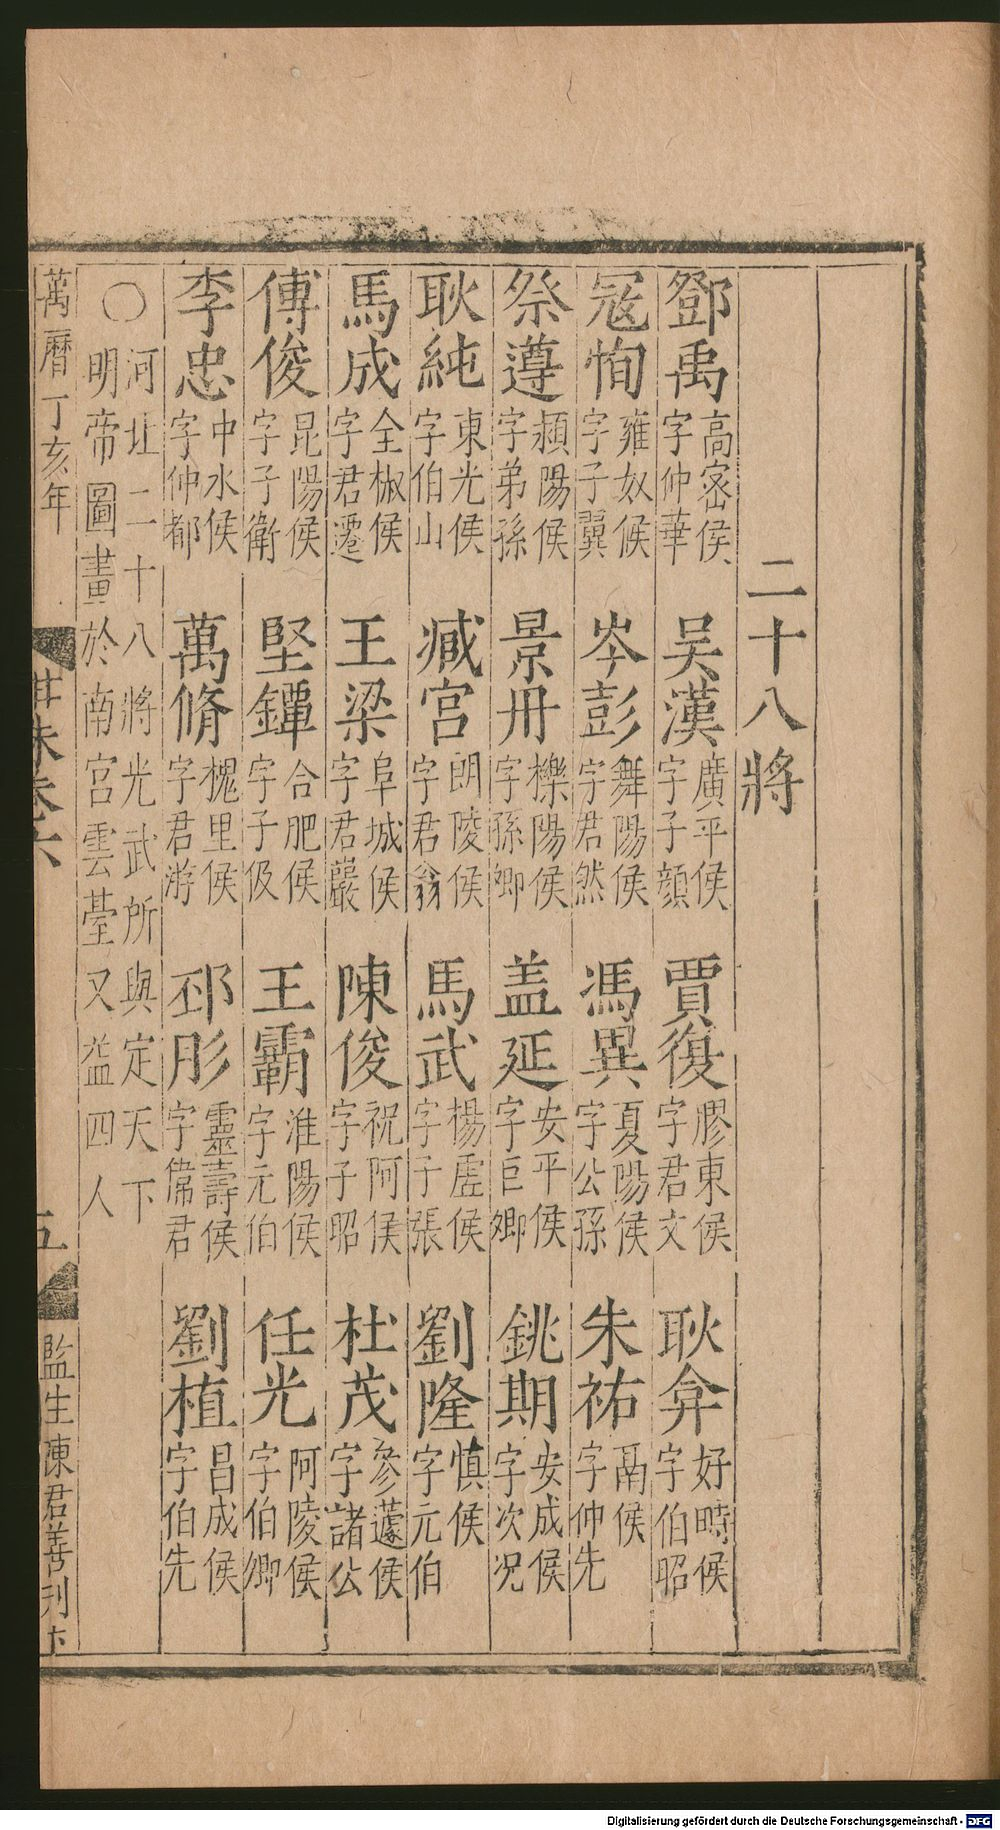 二十八將
鄧禹 高密侯 字仲華 吳漢 廣平侯 字子顔 賈復 膠東侯 字君文 耿弇 好畤侯 字伯昭
冦恂 雍奴候 字子翼 岑彭 舞陽侯 字君然 馮異 夏陽侯 字公孫 朱祐 鬲侯 字仲先
祭遵 潁陽侯 字弟孫 景丹 櫟陽侯 字孫卿 盖延 安平侯 字巨卿 銚期 安成侯 字次况
耿純 東光侯 字伯山 臧宫 朗陵侯 字君翁 馬武 楊虛侯 字子張 劉隆 慎侯 字元伯
馬成 全椒侯 字君遷 王梁 阜城侯 字君嚴 陳俊 祝阿侯 字子昭 杜茂 參蘧侯 字諸公
傅俊 昆陽侯 字子衛 堅鐔 合肥侯 字子伋 王霸 淮陽侯 字元伯 任光 阿陵侯 字伯卿
李忠 中水侯 字仲都 萬脩 槐里侯 字君游 邳彤 靈壽侯 字偉君 劉植 昌成侯 字伯先
○河北二十八將光武所與定天下
明帝圖畫於南宫雲臺又益四人
萬曆丁亥年 五 監生陳君善刊
Digitalisierung gefördert durch die Deutsche Forschungsgemeinschaft - DFG